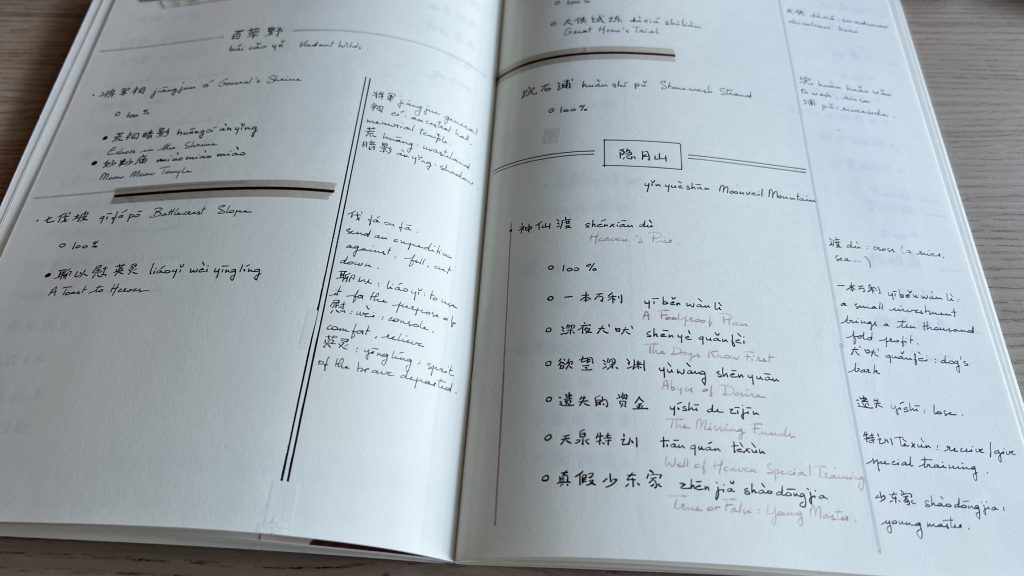 百草野
bǎi cǎo yě Verdant Wilds.
· 将军祠 jiāngjun cí General's Shrine
○ 100%
● 荒祠暗影 huāngcí ànyǐng
Echoes in the Shrine
● 妙妙庙 miào miào miào
Meow Meow Temple
将军 jiāngjun general
祠 cí: ancestral hall.
memorial temple.
荒 huāng: wasteland
暗影 ànyǐng: shadow
· 七伐坡 qīfá pō Battlecrest Slope
○ 100%
● 聊以慰英灵 liáoyǐ wèi yīnglíng
A Toast to Heroes
伐 fá
send an expedition
against, fell, cut
down.
聊以: liáoyǐ: to use
it for the purpose of
慰: wèi: console,
comfort, relieve
英灵: yīnglíng: spirit
of the brave departed.
○ 100%
○ 大侠试炼 dàxiá shìliàn
Great Hero's Trial
浣石浦 huàn shí pǔ Stonewash Strand
○ 100%
浣 huàn
to wash, rinse
浦 pǔ: riverside.
隐月山
yǐn yuè shān Moonveil Mountain
· 神仙渡 shénxiān dù
Heaven's Pier.
渡 dù: cross (a river,
sea...)
○ 100 %
○ 一本万利 yī běn wàn lì
A Foolproof Plan
○ 深夜犬吠 shēn yè quǎn fèi
The Dogs Know First
○ 欲望深渊 yùwàng shēn yuān
Abyss of Desire
○ 遗失的资金 yíshī de zījīn
The Missing Funds
○ 天泉特训 tiān quán tèxùn
Well of Heaven Special Training
○ 真假少东家 zhēn jiǎ shàodōngjia
True or False: Young Master.
一本万利 yīběnwànlì:
a small investment
brings a ten thousand
fold profit.
犬吠 quǎnfèi: dog's
bark
遗失 yíshī. lose.
特训 tèxùn: receive/give
special training.
少东家 shàodōngjia:
young master.